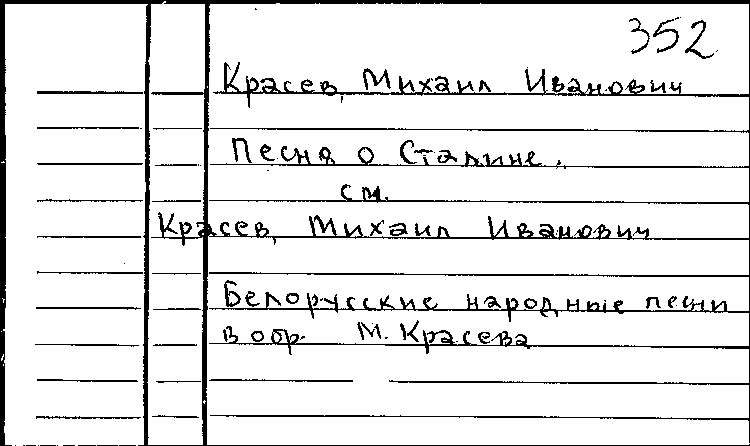 352
Красев, Михаил Иванович
Песня о Сталине.
см.
Красев, Михаил Иванович
Белорусские народные песни
в обр. М. Красева